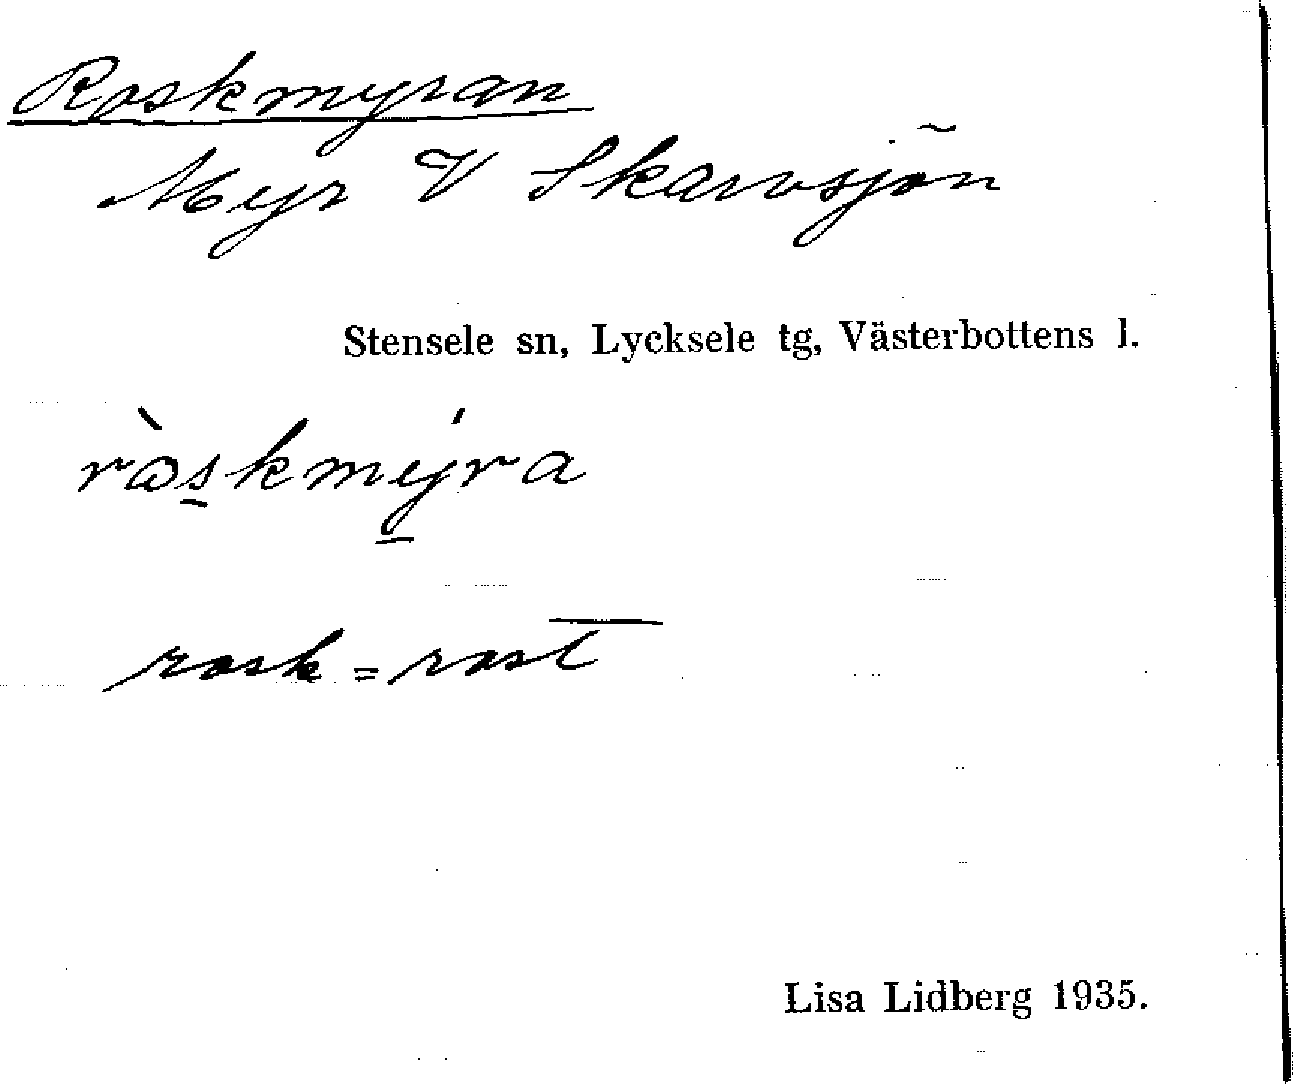 Roskmyran
Myr V Skarvsjön
Stensele sn, Lycksele tg, Västerbottens l.
ròskmýra
rosk = rost
Lisa Lidberg 1935.